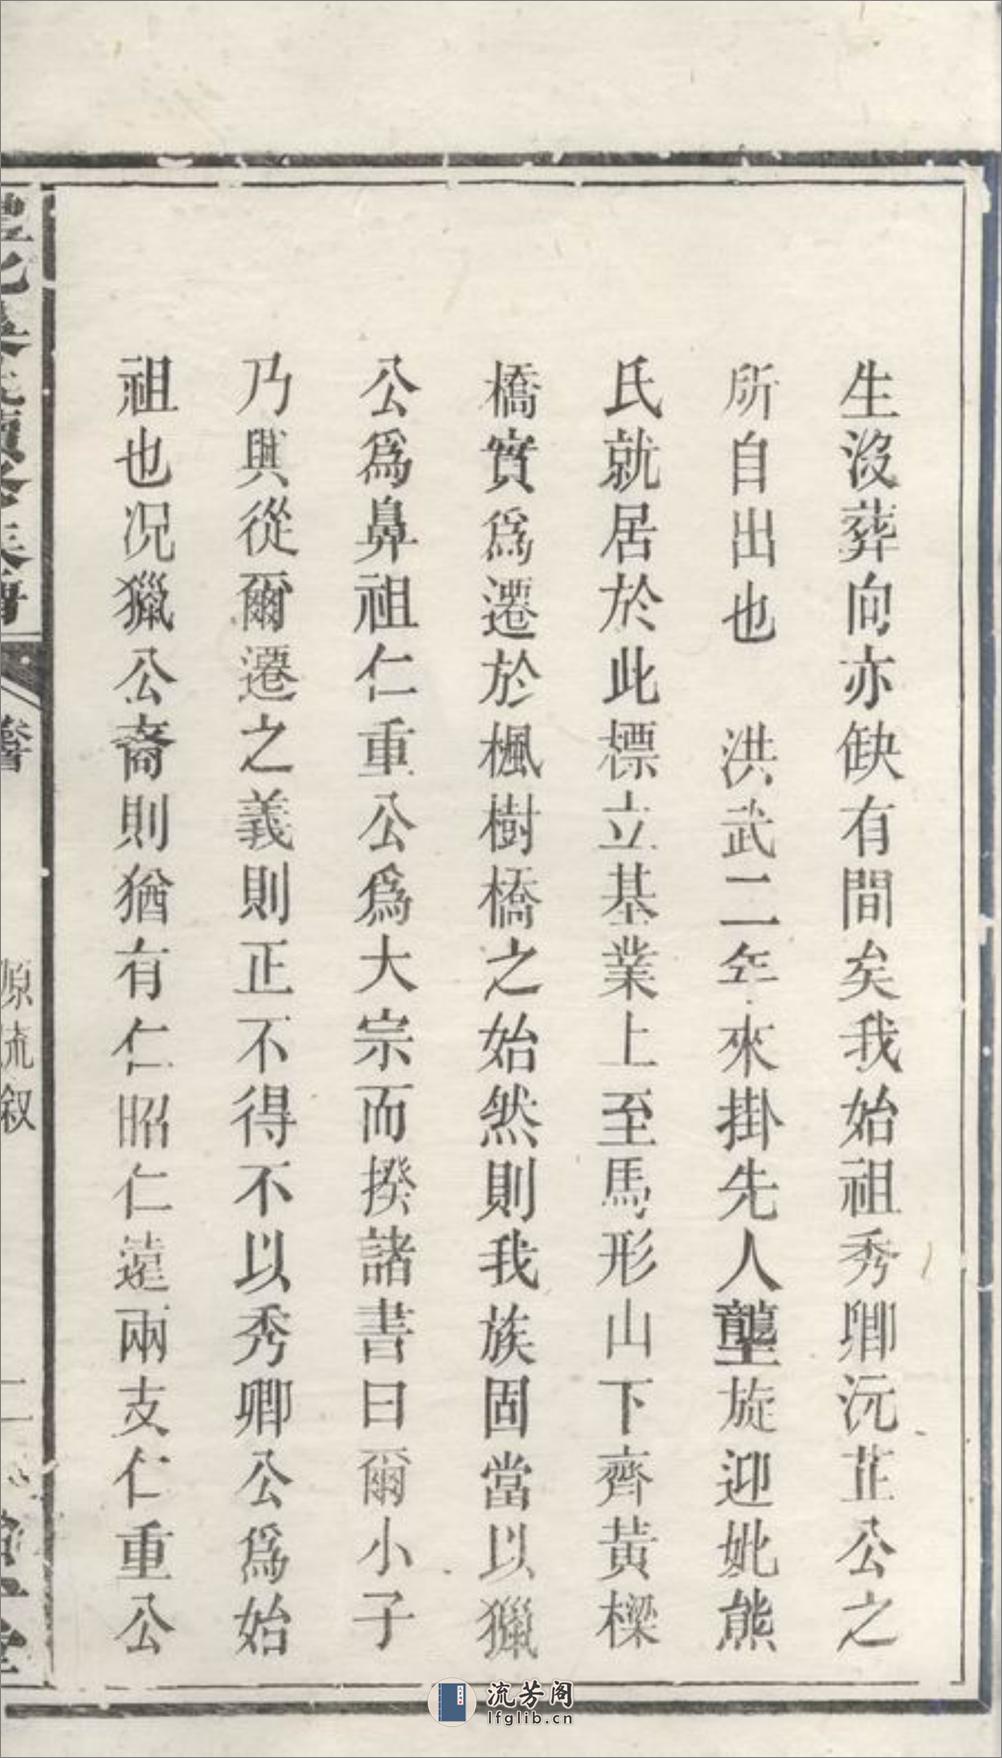 生沒葬向亦缺有間矣我始祖秀卿沅芷公之
所自出也　洪武二年來掛先人壟旋迎妣熊
氏就居於此標立基業上至馬形山下齊黃樑
橋實爲遷於楓樹橋之始然則我族固當以獵
公爲鼻祖仁重公爲大宗而揆諸書曰爾小子
乃興從爾遷之義則正不得不以秀卿公爲始
祖也況獵公裔則猶有仁昭仁遠兩支仁重公
原流叙
二
流芳阁
lfglib.cn